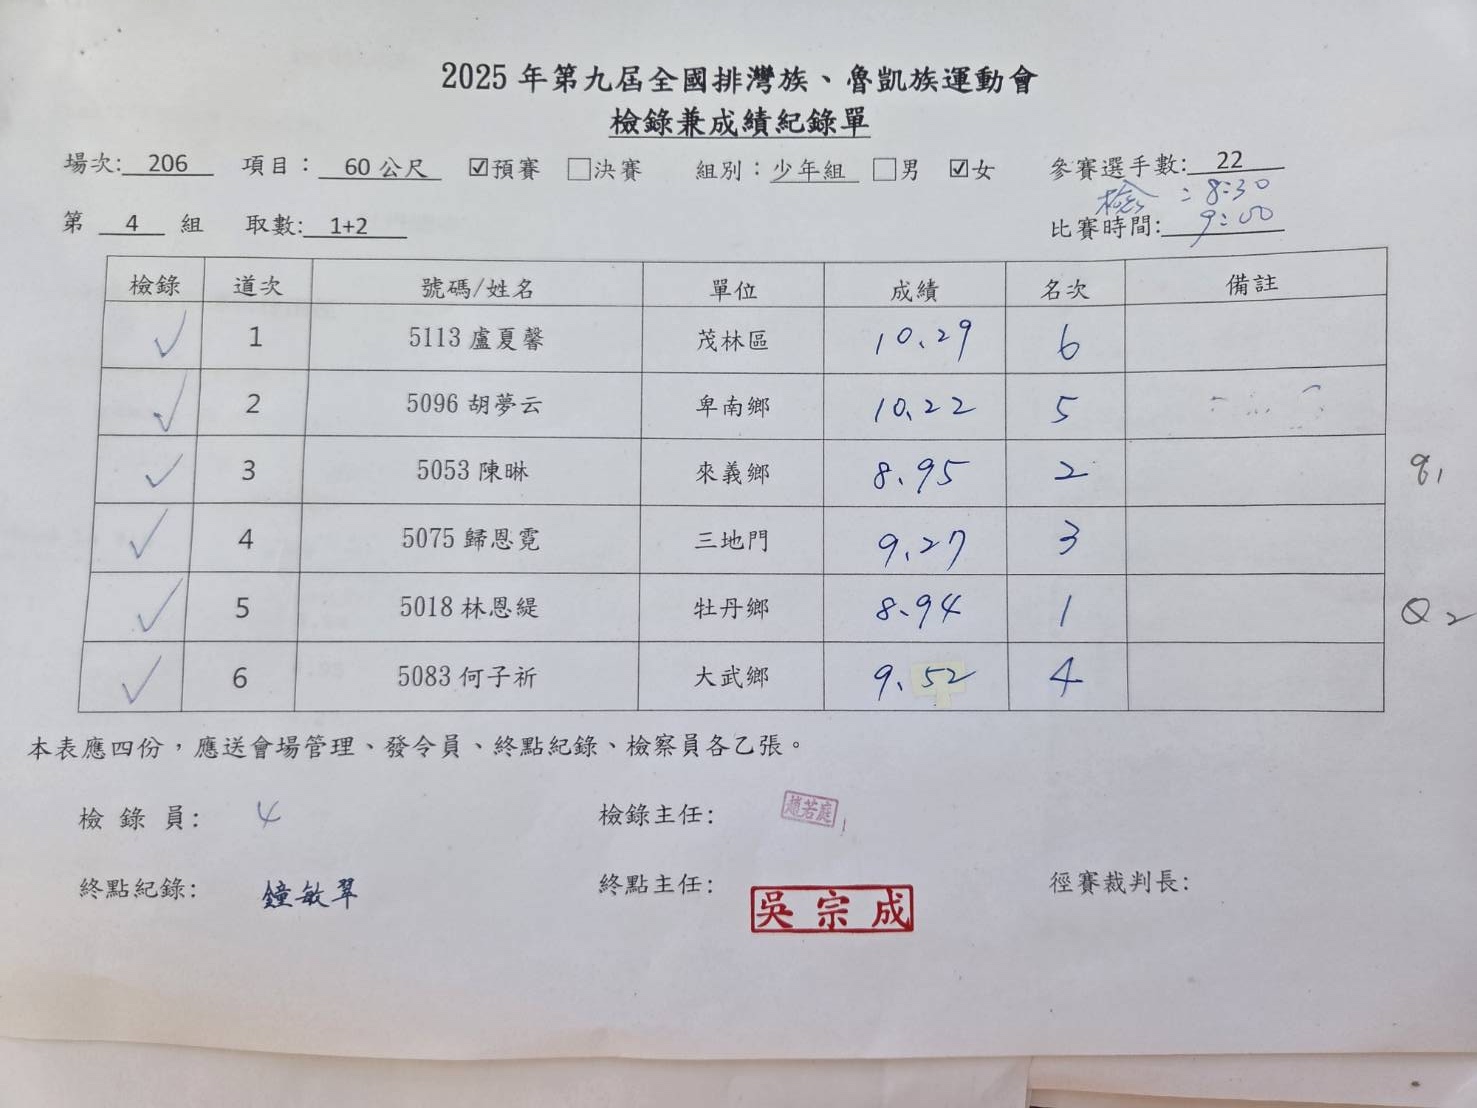 2025 年第九屆全國排灣族、魯凱族運動會
檢錄兼成績紀錄單
場次: 206 項目： 60 公尺 ☑預賽 □決賽 組別：少年組 □男 ☑女 參賽選手數: 22
檢 : 8:30
第 4 組 取數: 1+2 比賽時間: 9:00
檢錄 道次 號碼/姓名 單位 成績 名次 備註
✓ 1 5113 盧夏馨 茂林區 10.29 6
✓ 2 5096 胡夢云 卑南鄉 10.22 5
✓ 3 5053 陳晽 來義鄉 8.95 2 q1
✓ 4 5075 歸恩霓 三地門 9.27 3
✓ 5 5018 林恩緹 牡丹鄉 8.94 1 Q2
✓ 6 5083 何子祈 大武鄉 9.52 4
本表應四份，應送會場管理、發令員、終點紀錄、檢察員各乙張。
檢 錄 員: 檢錄主任: 趙若庭
終點紀錄: 鐘敏翠 終點主任: 吳宗成 徑賽裁判長: